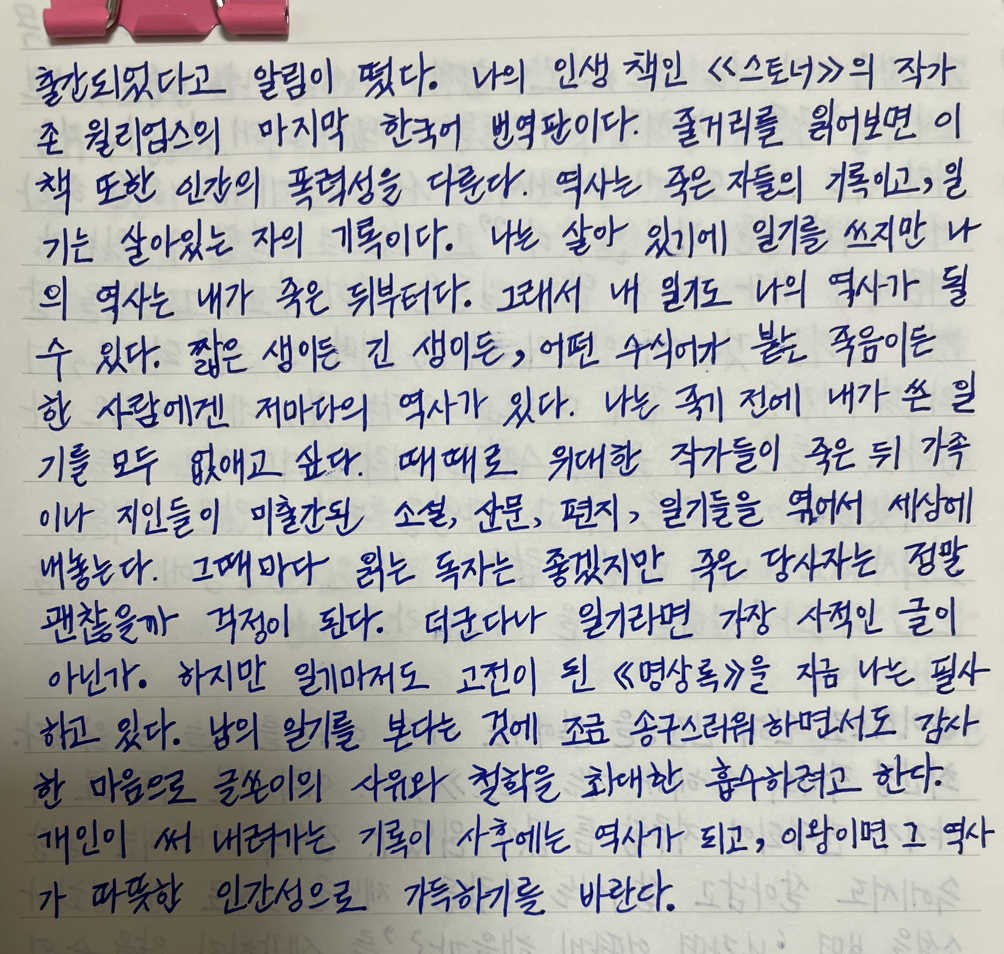 출간되었다고 알림이 떴다. 나의 인생 책인 《스토너》의 작가
존 윌리엄스의 마지막 한국어 번역판이다. 줄거리를 읽어보면 이
책 또한 인간의 폭력성을 다룬다. 역사는 죽은 자들의 기록이고, 일
기는 살아있는 자의 기록이다. 나는 살아 있기에 일기를 쓰지만 나
의 역사는 내가 죽은 뒤부터다. 그래서 내 일기도 나의 역사가 될
수 있다. 짧은 생이든 긴 생이든, 어떤 수식어가 붙는 죽음이든
한 사람에겐 저마다의 역사가 있다. 나는 죽기 전에 내가 쓴 일
기를 모두 없애고 싶다. 때때로 위대한 작가들이 죽은 뒤 가족
이나 지인들이 미출간된 소설, 산문, 편지, 일기들을 엮어서 세상에
내놓는다. 그때마다 읽는 독자는 좋겠지만 죽은 당사자는 정말
괜찮을까 걱정이 된다. 더군다나 일기라면 가장 사적인 글이
아닌가. 하지만 일기마저도 고전이 된 《명상록》을 지금 나는 필사
하고 있다. 남의 일기를 본다는 것에 조금 송구스러워 하면서도 감사
한 마음으로 글쓴이의 사유와 철학을 최대한 흡수하려고 한다.
개인이 써 내려가는 기록이 사후에는 역사가 되고, 이왕이면 그 역사
가 따뜻한 인간성으로 가득하기를 바란다.